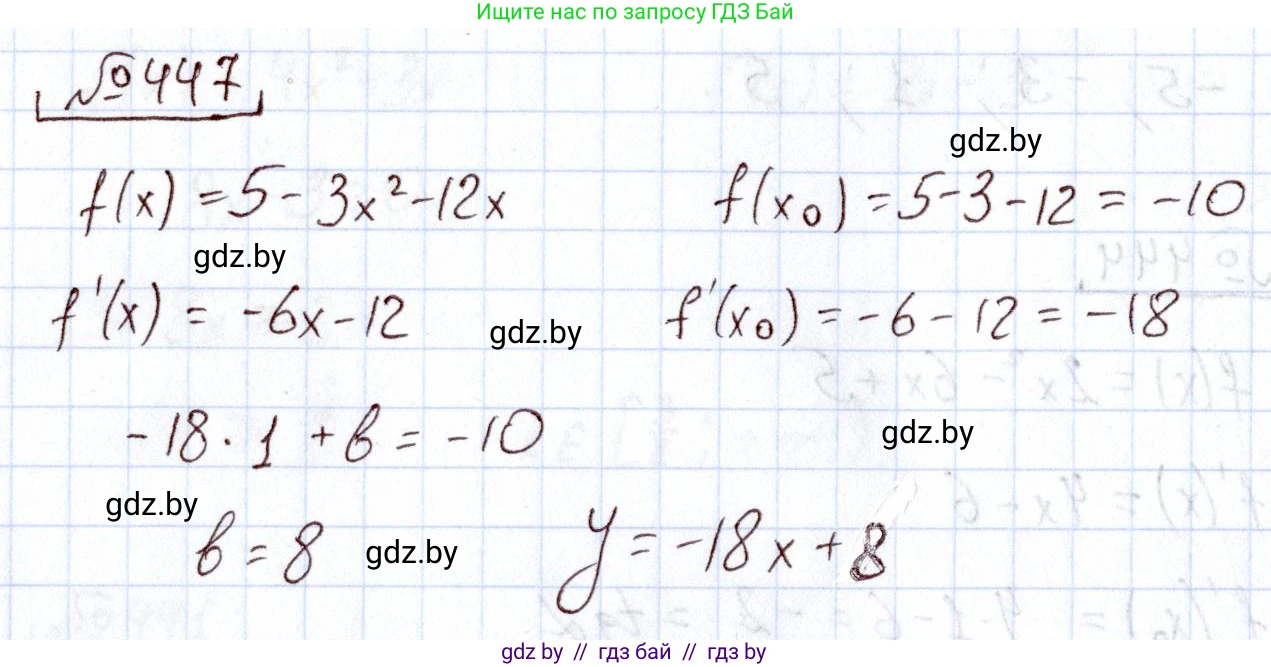 Ищите нас по запросу ГДЗ Бай
№447
f(x) = 5 - 3x² - 12x
f(x₀) = 5 - 3 - 12 = -10
f'(x) = -6x - 12
f'(x₀) = -6 - 12 = -18
-18 · 1 + в = -10
в = 8
y = -18x + 8
gdz.by
gdz.by
gdz.by
gdz.by
gdz.by
gdz.by
gdz by // гдз бай // гдз by